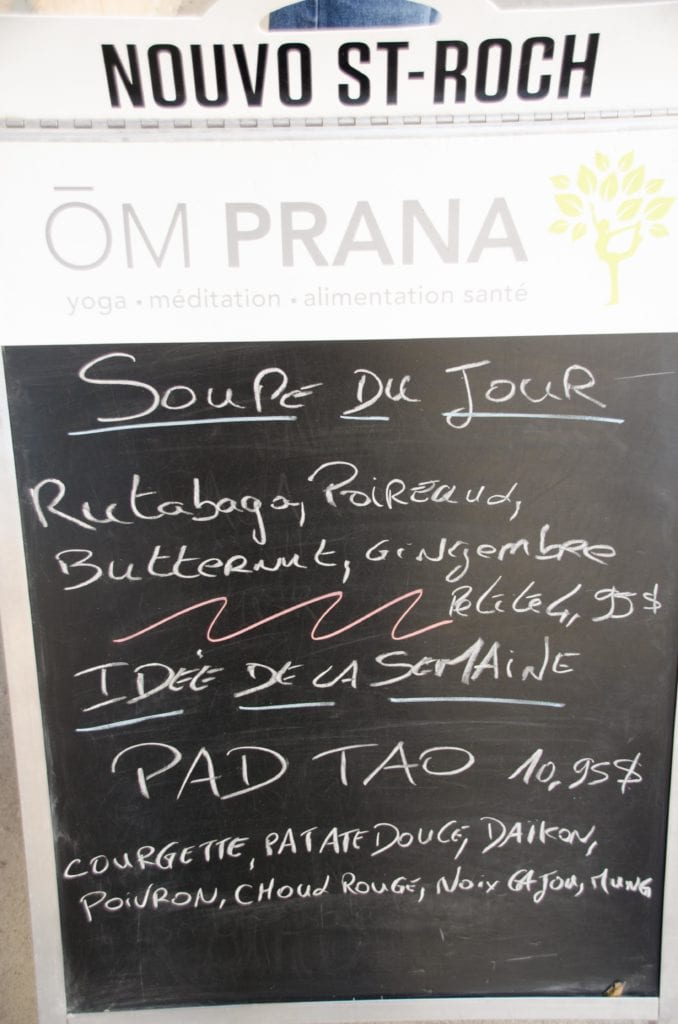 NOUVO ST-ROCH
ŌM PRANA
yoga • méditation • alimentation santé
SOUPE DU JOUR
Rutabaga, POIREAUd,
BUTTERNUT, GINGEMBRE
PETITE 4,95$
IDÉE DE LA SEMAINE
PAD TAO 10,95$
COURGETTE, PATATE DOUCE, DAÏKON,
POIVRON, CHOUd ROUGE, NOIX CAJOU, MUNG